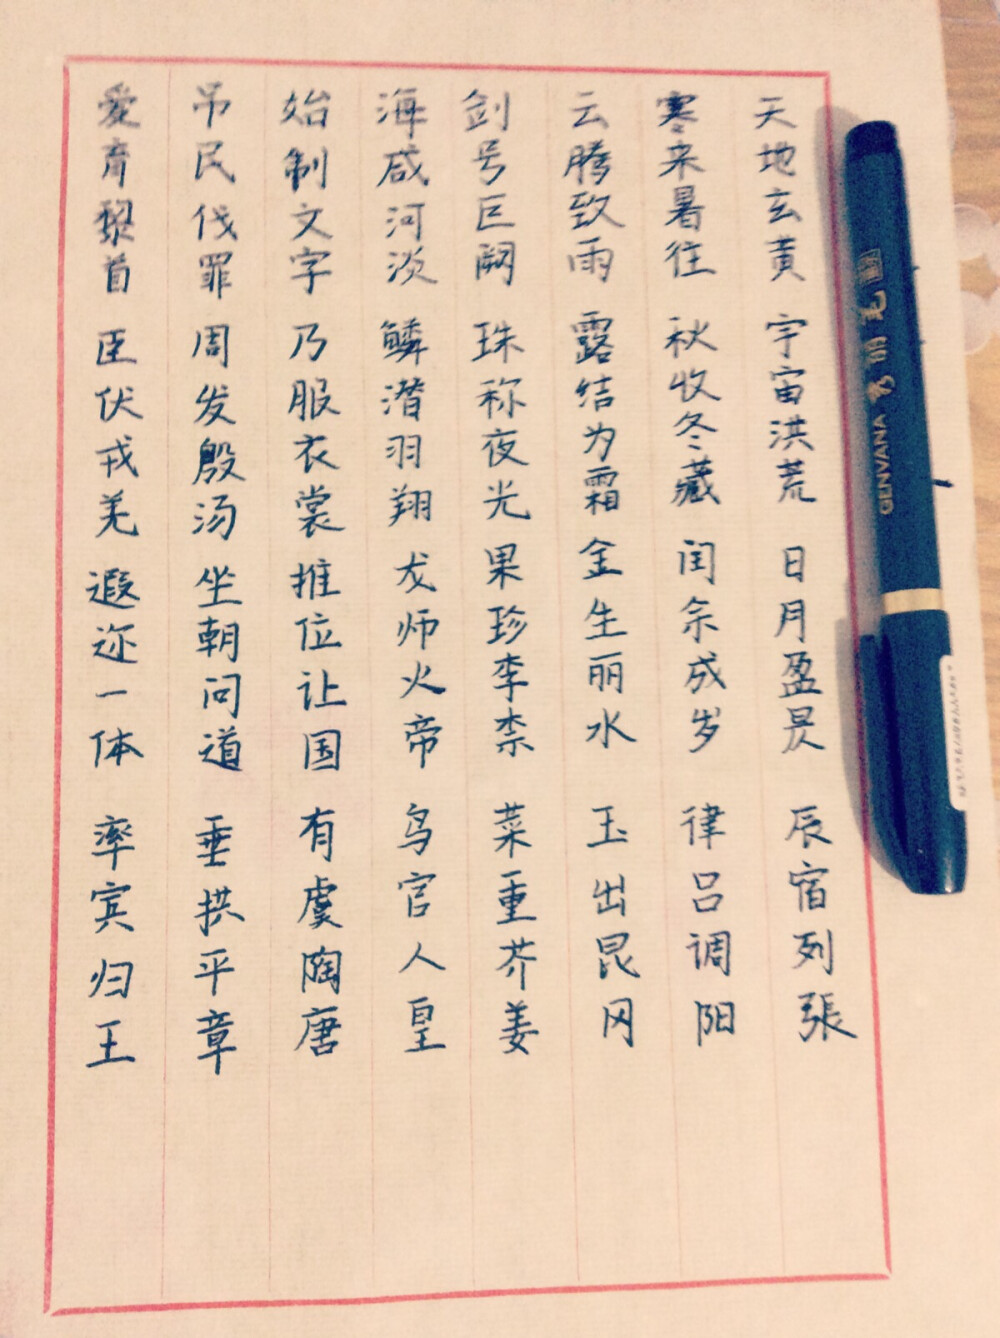 天地玄黄 宇宙洪荒 日月盈昃 辰宿列張
寒来暑往 秋收冬藏 闰余成岁 律吕调阳
云腾致雨 露结为霜 金生丽水 玉出昆冈
剑号巨阙 珠称夜光 果珍李柰 菜重芥姜
海咸河淡 鳞潜羽翔 龙师火帝 鸟官人皇
始制文字 乃服衣裳 推位让国 有虞陶唐
吊民伐罪 周发殷汤 坐朝问道 垂拱平章
愛育黎首 臣伏戎羌 遐迩一体 率宾归王
GENVANA